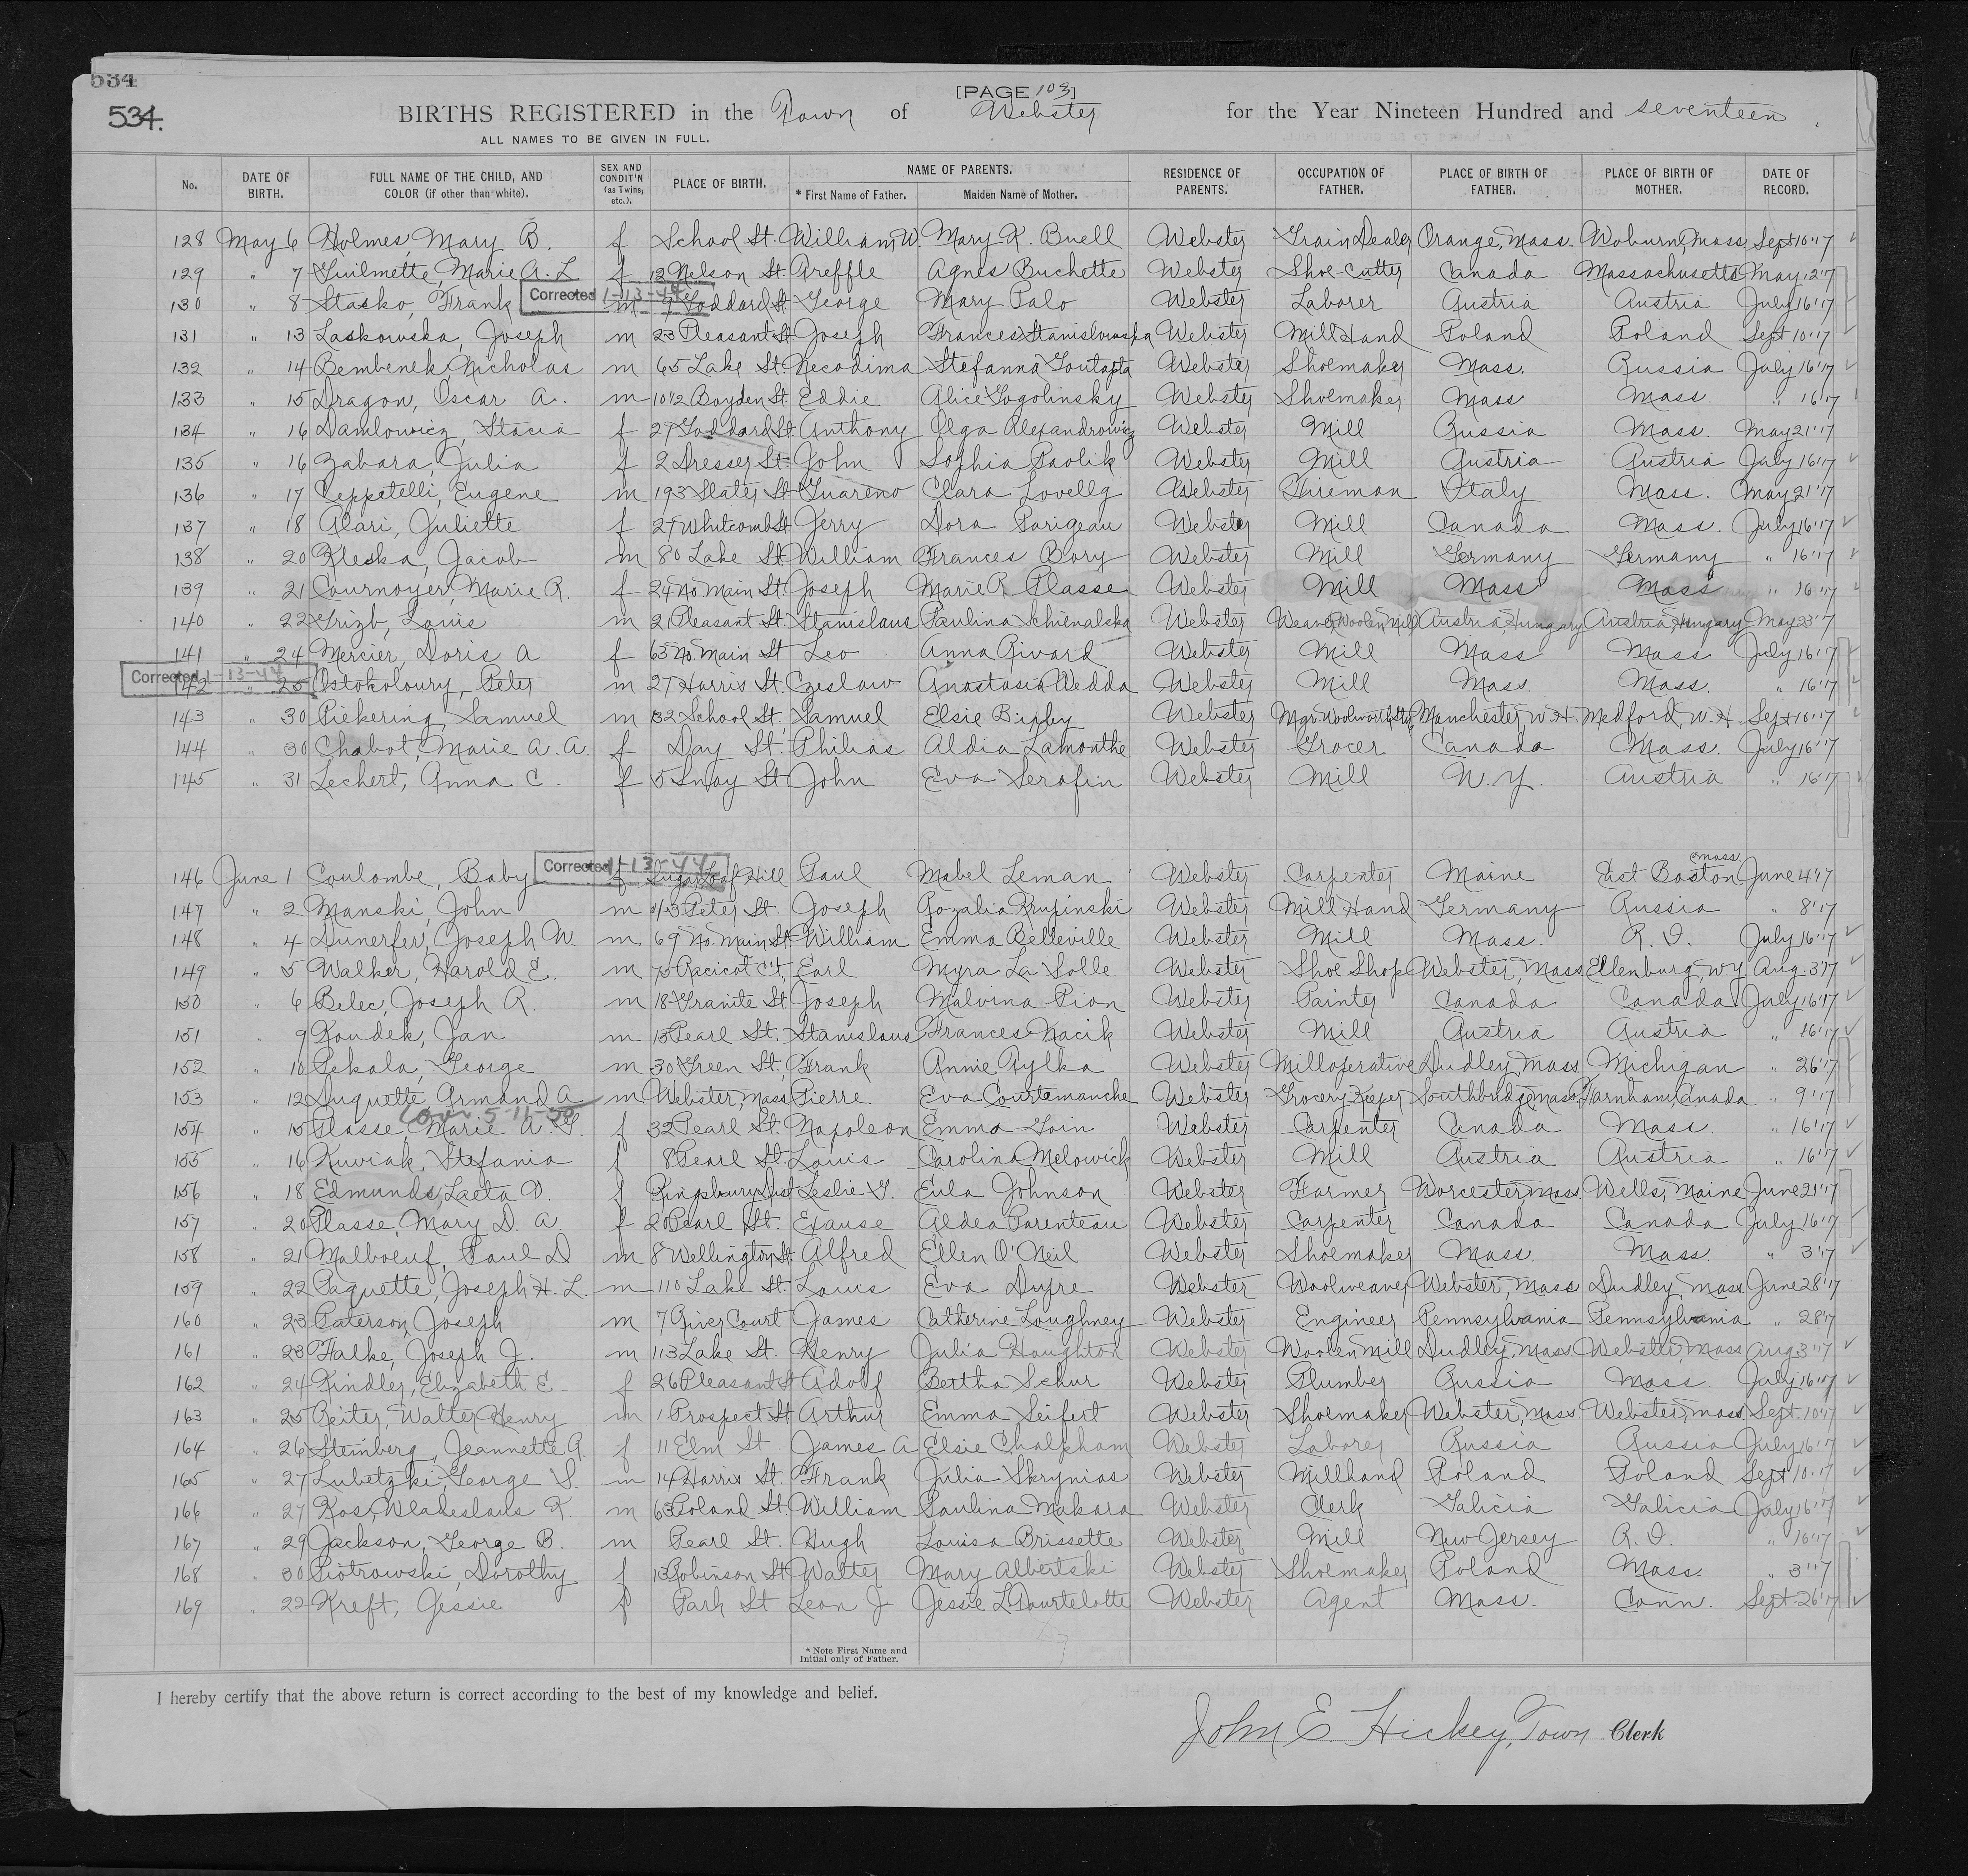 534
534.
[PAGE 103]
BIRTHS REGISTERED in the Town of Webster for the Year Nineteen Hundred and seventeen.
ALL NAMES TO BE GIVEN IN FULL.
No. DATE OF BIRTH. FULL NAME OF THE CHILD, AND COLOR (if other than white). SEX AND CONDIT'N (as Twins, etc.). PLACE OF BIRTH. NAME OF PARENTS. * First Name of Father. Maiden Name of Mother. RESIDENCE OF PARENTS. OCCUPATION OF FATHER. PLACE OF BIRTH OF FATHER. PLACE OF BIRTH OF MOTHER. DATE OF RECORD.
128 May 6 Holmes, Mary B. f School St. William W. Mary K. Buell Webster Grain Dealer Orange, Mass. Woburn, Mass. Sept 10 '17
129 " 7 Guilmette, Marie A. L f 12 Nelson St. Areffle Agnes Buchette Webster Shoe-Cutter Canada Massachusetts May 12 '17
130 " 8 Stasko, Frank Corrected 1-13-44 m 9 Goddard St. George Mary Palo Webster Laborer Austria Austria July 16 '17
131 " 13 Laskowska, Joseph m 23 Pleasant St Joseph Frances Stanislowska Webster Mill Hand Poland Poland Sept 10 '17
132 " 14 Bembenek, Nicholas m 65 Lake St. Necodima Stefanna Webster Shoemaker Mass. Russia July 16 '17
133 " 15 Dragon, Oscar A. m 10 1/2 Boyden St. Eddie Alice Gogolinsky Webster Shoemaker Mass Mass. " 16 '17
134 " 16 Damlowicz, Stacia f 27 Goddard St. Anthony Olga Alexandrowicz Webster Mill Russia Mass. May 21 '17
135 " 16 Zabara, Julia f 2 Dresser St. John Sophia Paolik Webster Mill Austria Austria July 16 '17
136 " 17 Ceppetelli, Eugene m 193 Slater St Guareno Clara Lovellg Webster Fireman Italy Mass. May 21 '17
137 " 18 Alari, Juliette f 27 Whitcomb St Jerry Dora Parigeau Webster Mill Canada Mass. July 16 '17
138 " 20 Kleska, Jacob m 80 Lake St. William Frances Bory Webster Mill Germany Germany " 16 '17
139 " 21 Cournoyer, Marie R. f 24 No. Main St. Joseph Marie R. Plasse Webster Mill Mass Mass " 16 '17
140 " 22 Grizb, Louis m 21 Pleasant St. Stanislaus Paulina Schienalska Webster Weaver, Woolen Mill Austria, Hungary Austria, Hungary May 23 '17
141 " 24 Mercier, Doris A f 63 No. Main St Leo Anna Rivard Webster Mill Mass Mass July 16 '17
Corrected 1-13-44
142 " 25 Ostokoloury, Peter m 27 Harris St. Czeslaw Anastasia Wedda Webster Mill Mass. Mass. " 16 '17
143 " 30 Pickering, Samuel m 32 School St. Samuel Elsie Bixby Webster Mgr. Woolworth Store Manchester, N.H. Medford, N.H. Sept 10 '17
144 " 30 Chabot, Marie A. A. f Day St. Philias Aldia Lamonthe Webster Grocer Canada Mass. July 16 '17
145 " 31 Lechert, Anna C. f 5 Snay St John Eva Serafin Webster Mill N.Y. Austria " 16 '17
146 June 1 Coulombe, Baby Corrected 1-13-44 f Sugar Loaf Hill Paul Mabel Leman Webster Carpenter Maine East Boston Mass. June 4 '17
147 " 2 Manski, John m 43 Peter St. Joseph Rozalia Krupinski Webster Mill Hand Germany Russia " 8 '17
148 " 4 Dunerfer, Joseph W. m 69 No. Main St. William Emma Belleville Webster Mill Mass. R.I. July 16 '17
149 " 5 Walker, Harold E. m 75 Racicot Ct. Earl Myra La Solle Webster Shoe Shop Webster, Mass Ellenburg, N.Y. Aug. 3 '17
150 " 6 Belec, Joseph R. m 18 Granite St. Joseph Malvina Pion Webster Painter Canada Canada July 16 '17
151 " 9 Koudek, Jan m 15 Pearl St. Stanislaus Frances Nacik Webster Mill Austria Austria " 16 '17
152 " 10 Pekala, George m 30 Green St. Frank Annie Rylka Webster Mill operative Dudley, Mass Michigan " 26 '17
153 " 12 Duquette, Armand A m Webster, Mass. Pierre Eva Courtemanche Webster Grocery Keeper Southbridge, Mass Farnham, Canada " 9 '17
Corr. 5-11-50
154 " 15 Plasse, Marie A. G. f 32 Pearl St. Napoleon Emma Goin Webster Carpenter Canada Mass. " 16 '17
155 " 16 Kuviak, Stefania f 8 Pearl St. Louis Carolina Melowick Webster Mill Austria Austria " 16 '17
156 " 18 Edmunds, Laeta O. f Kingsbury Dist Leslie G. Eula Johnson Webster Farmer Worcester, Mass. Wells, Maine June 21 '17
157 " 20 Plasse, Mary D. A. f 20 Pearl St. Exause Aldea Parenteau Webster Carpenter Canada Canada July 16 '17
158 " 21 Malboeuf, Paul D m 8 Wellington St. Alfred Ellen O'Neil Webster Shoemaker Mass. Mass. " 3 '17
159 " 22 Paquette, Joseph H. L. m 110 Lake St. Louis Eva Dupre Webster Woolweaver Webster, Mass Dudley, Mass. June 28 '17
160 " 23 Paterson, Joseph m 7 River Court James Catherine Loughney Webster Engineer Pennsylvania Pennsylvania " 28 '17
161 " 23 Falke, Joseph J. m 113 Lake St. Henry Julia Houghton Webster Woolen Mill Dudley, Mass. Webster, Mass Aug 3 '17
162 " 24 Kindler, Elizabeth E. f 26 Pleasant St Adolf Bertha Schur Webster Plumber Russia Mass. July 16 '17
163 " 25 Reiter, Walter Henry m 1 Prospect St Arthur Emma Seifert Webster Shoemaker Webster, Mass. Webster, Mass. Sept. 10 '17
164 " 26 Steinberg, Jeannette A. f 11 Elm St James A Elsie Chalpham Webster Laborer Russia Russia July 16 '17
165 " 27 Lubetzki, George S. m 14 Harris St. Frank Julia Skrynias Webster Millhand Poland Poland Sept 10 '17
166 " 27 Kos, Wladeslaus K. m 63 Poland St. William Paulina Makara Webster Clerk Galicia Galicia July 16 '17
167 " 29 Jackson, George B. m Pearl St. Hugh Louisa Brissette Webster Mill New Jersey R.I. " 16 '17
168 " 30 Piotrowski, Dorothy f 13 Robinson St. Walter Mary Albertski Webster Shoemaker Poland Mass. " 3 '17
169 " 22 Kreft, Jessie f Park St Leon J Jessie L Tourtelotte Webster Agent Mass. Conn. Sept. 26 '17
* Note First Name and
Initial only of Father.
I hereby certify that the above return is correct according to the best of my knowledge and belief.
John E. Hickey, Town Clerk